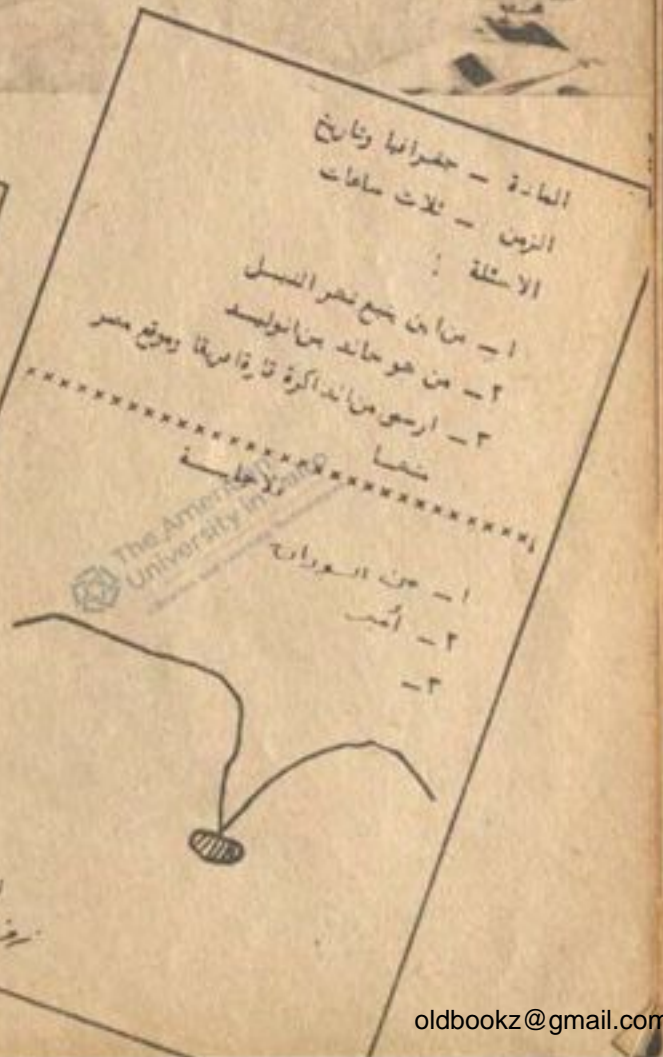 المادة – جغرافيا وتاريخ
الزمن – ثلاث ساعات
الاسئلة :
١ – من اين ينبع نهر النيل
٢ – من هو خالد بن الوليد
٣ – ارسم من الذاكرة قارة افريقا وموقع مصر
منها
الاجابة
١ – من السودان
٢ –
٣ –
The American
University in Cairo
oldbookz@gmail.com